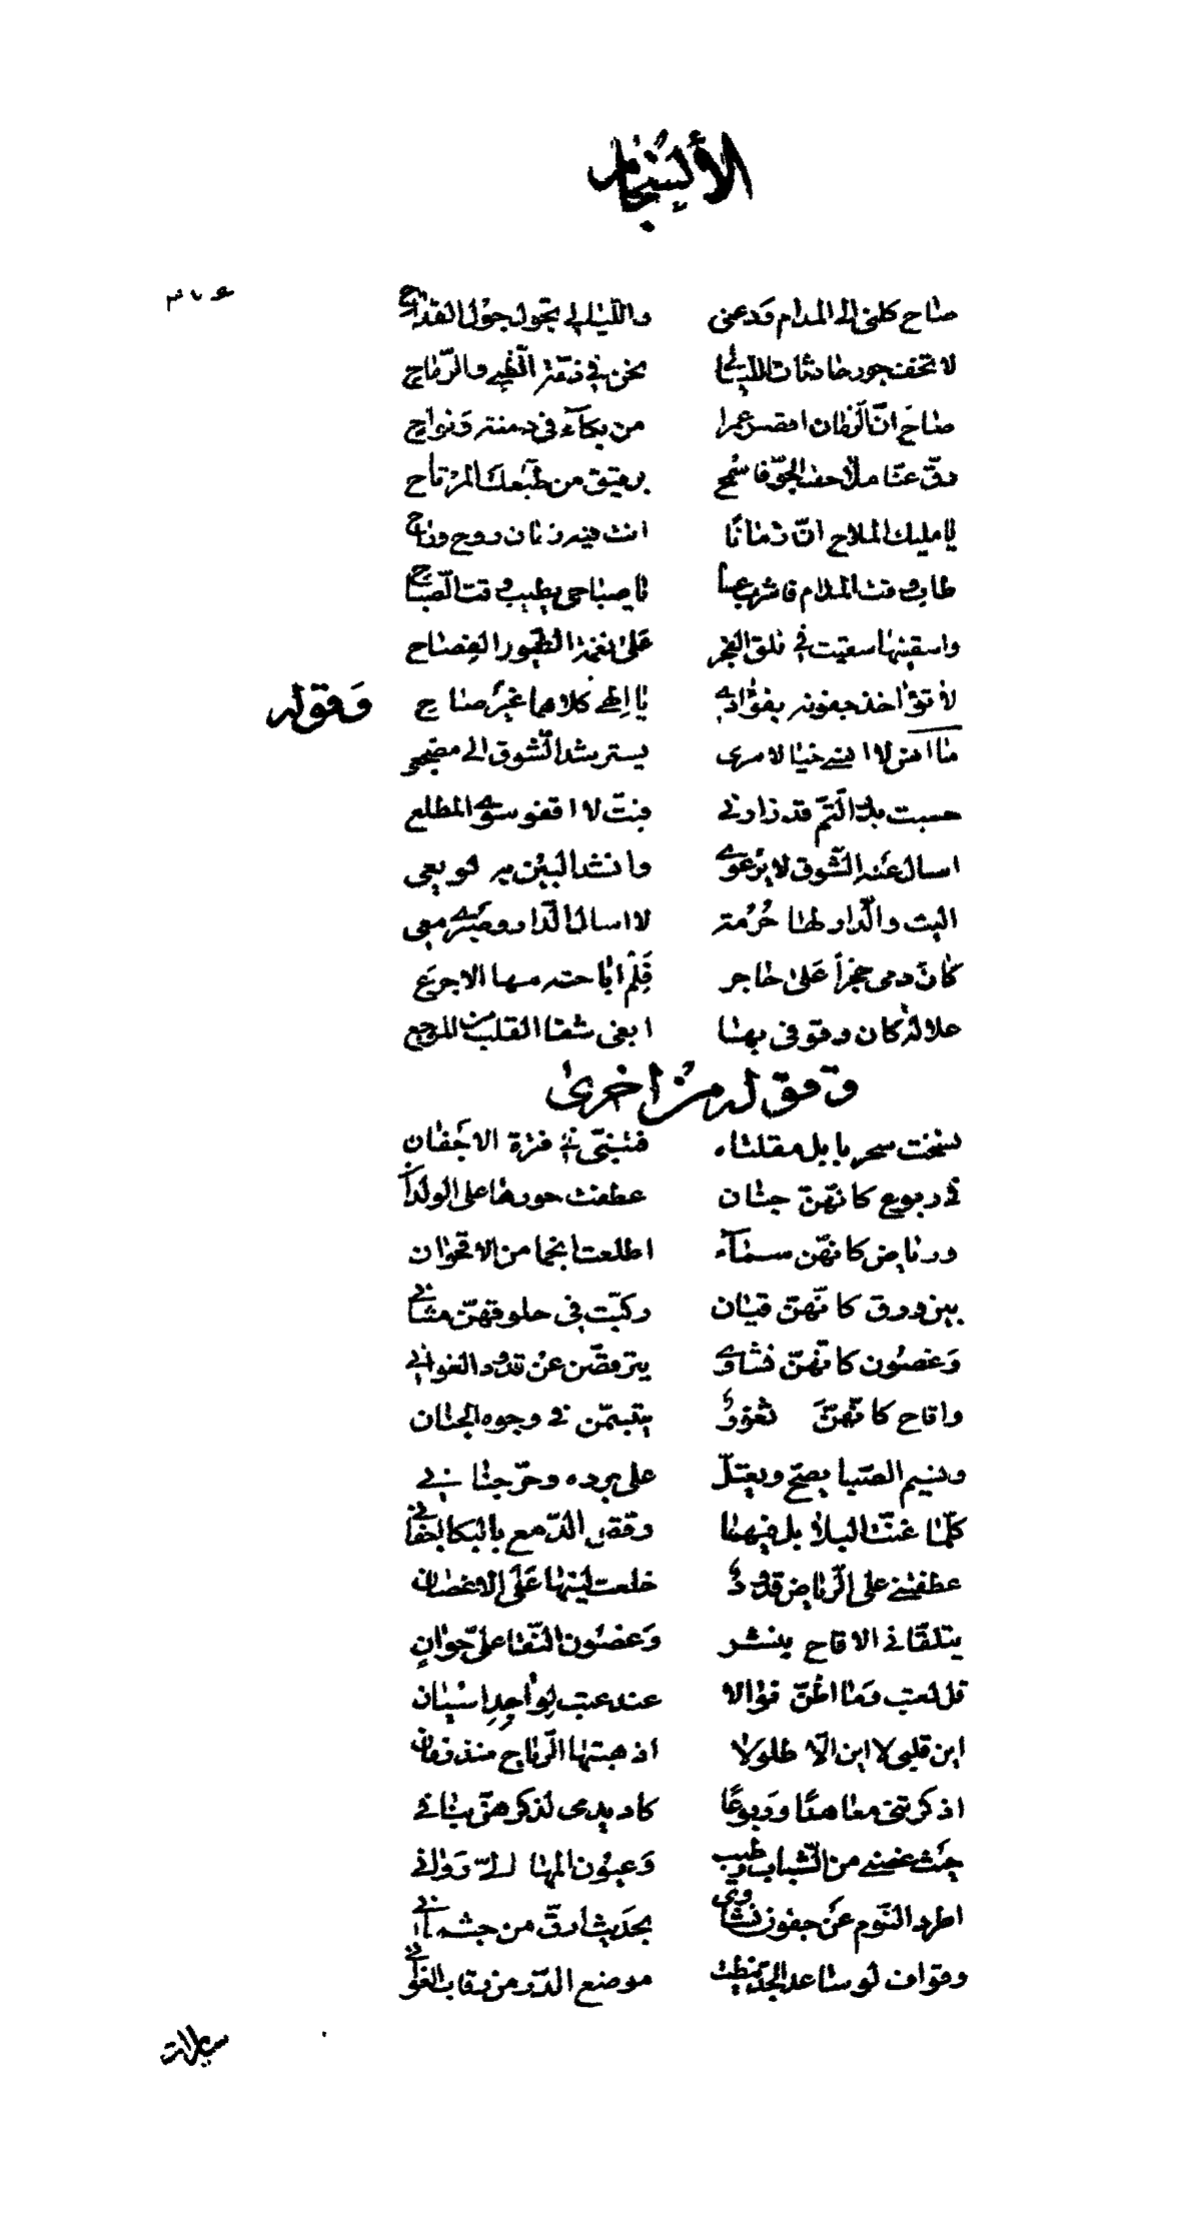 صاح كلنى الى المدام ودعنى والليالى تجول جول القداح
لا تخف جور حادثات الليالى نحن فى ذمة الظبى والرماح
صاح ان الزمان اقصر عمرا من بكاء فى دمنة ونواح
رق عنا ملاحف الجو فاسمح برقيق من طبعك المرتاح
يا مليك الملاح ان زمانا انت فيه زمان روح وراح
طاب وقت المدام فاشرب عليها يا صباحى بطيب وقت الصباح
واسقنيها سقيت فى فلق الفجر على نغمة الطيور الفصاح
لا تؤاخذ جفونه بفؤادى يا الهى كلاهما غير صاح
وقوله
ما انس لا انسى خيالا سرى يسترشد الشوق الى مضجعى
حسبت بدر التم قد زارنى فبت لا اقفو سوى المطلع
اسال عنه الشوق لا يرعوى وانشد البين به لو يعى
اليت والدار لها حرمة لا اسال الدار وصبرى معى
كان دمى حجرا على حاجر فلم اباحته مها الاجرع
علاله كان وقوفى بها ابغى شفا القلب من الموجع
وقوله من اخرى
نسخت سحر بابل مقلتاه فنبى فى فترة الاجفان
فى ربوع كانهن جنان عطفت حورها على الولدان
ورياض كانهن سماء اطلعت انجما من الاقحوان
بين ورق كانهن قيان ركبت فى حلوقهن مثانى
وغصون كانهن نشاوى يترقصن عن قدود الغوانى
واقاح كانهن ثغور يتبسمن فى وجوه الجنان
ونسيم الصبا يصح ويعتل على برده وحر جنانى
كلما غنت البلابل فيها رقص الدمع بالبكا اجفانى
عطفتنى على الرياض قدود خلعت لينها على الاغصان
يتلقانى الاقاح بنشر وغصون النقا على حوان
قل لعتب وما اظن نوالا عند عتب لواجد اسيان
اين قلبى لا اين الا طلولا اذهبتها الرياح منذ زمان
اذكرتنى معاهدا وربوعا كاد يدمى لذكرهن بنانى
حيث غصنى من الشباب رطيب وعيون المها الى روانى
اطرد النوم عن جفون نشاوى بحديث ارق من جثمانى
وقواف لو ساعد الجد نيطت موضع الدر من رقاب الغوانى